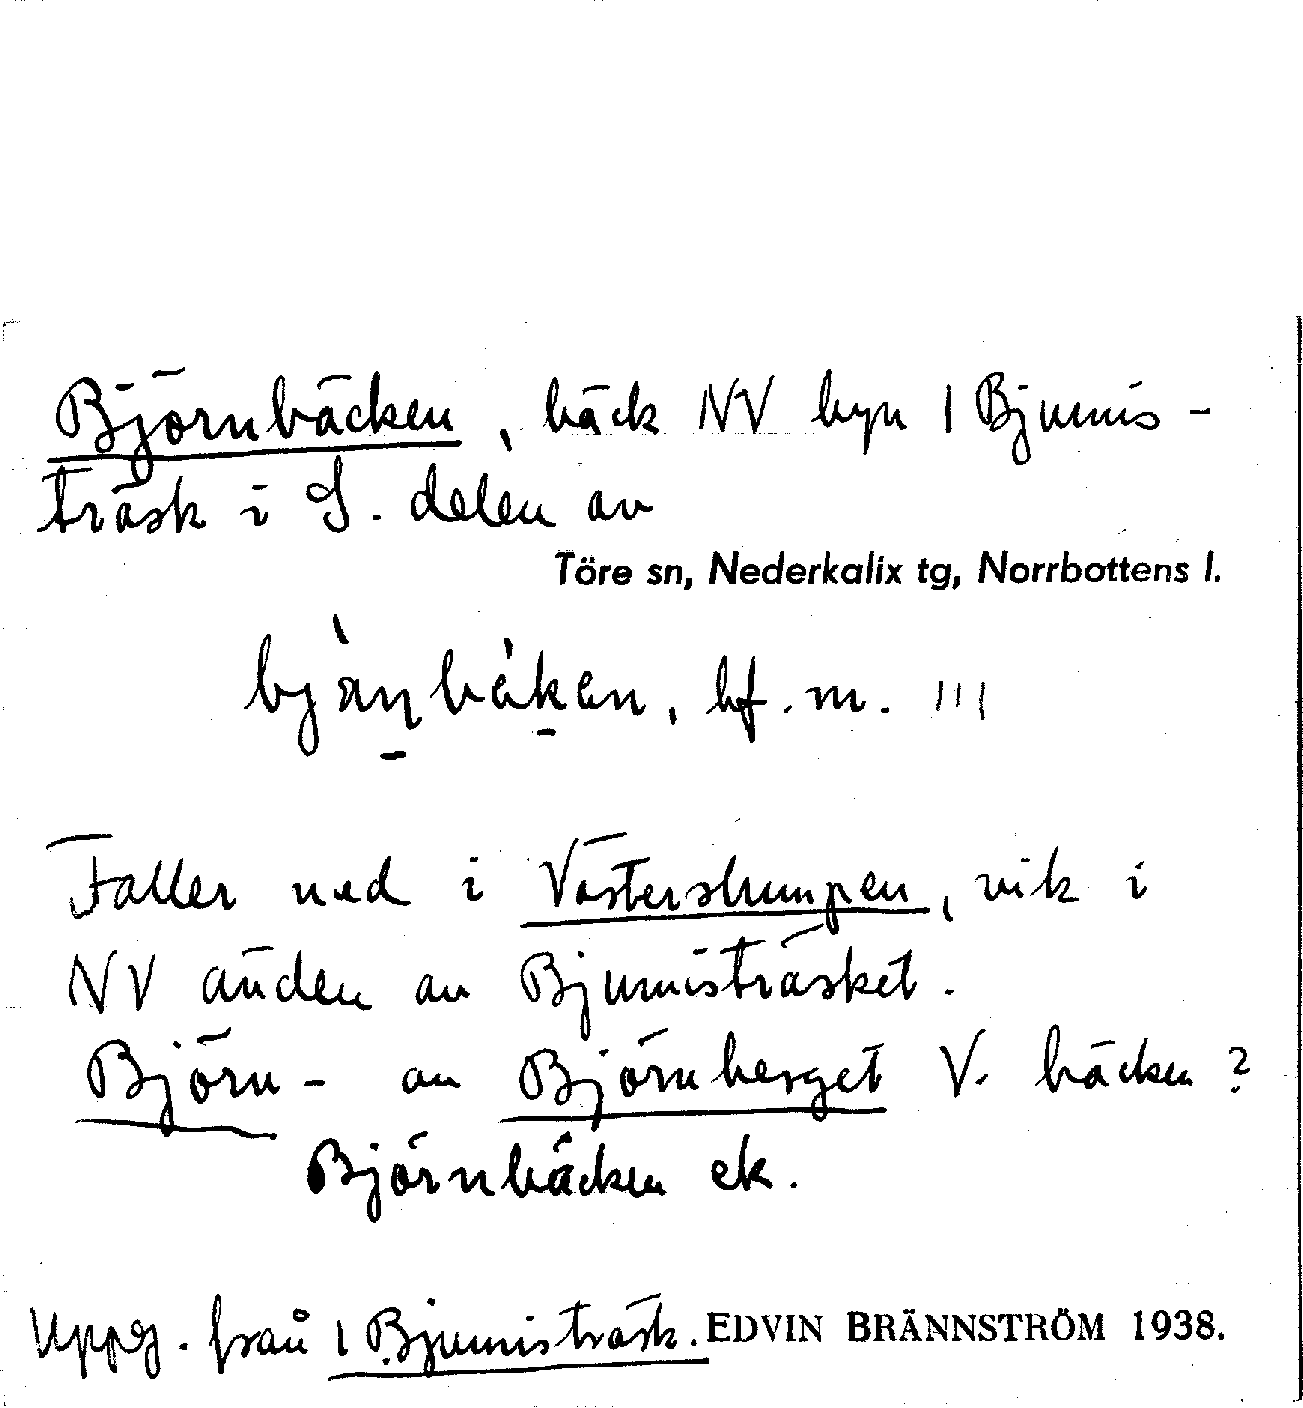 Björnbäcken, bäck NV byn 1 Bjumis-
träsk i S. delen av
Töre sn, Nederkalix tg, Norrbottens l.
bf. m. III
Faller ned i Västerstumpen, vik i
NV änden av Bjumisträsket.
Björn- av Björnberget V. bäcken?
Björnbäcken ek.
Uppg. från 1 Bjumisträsk. EDVIN BRÄNNSTRÖM 1938.